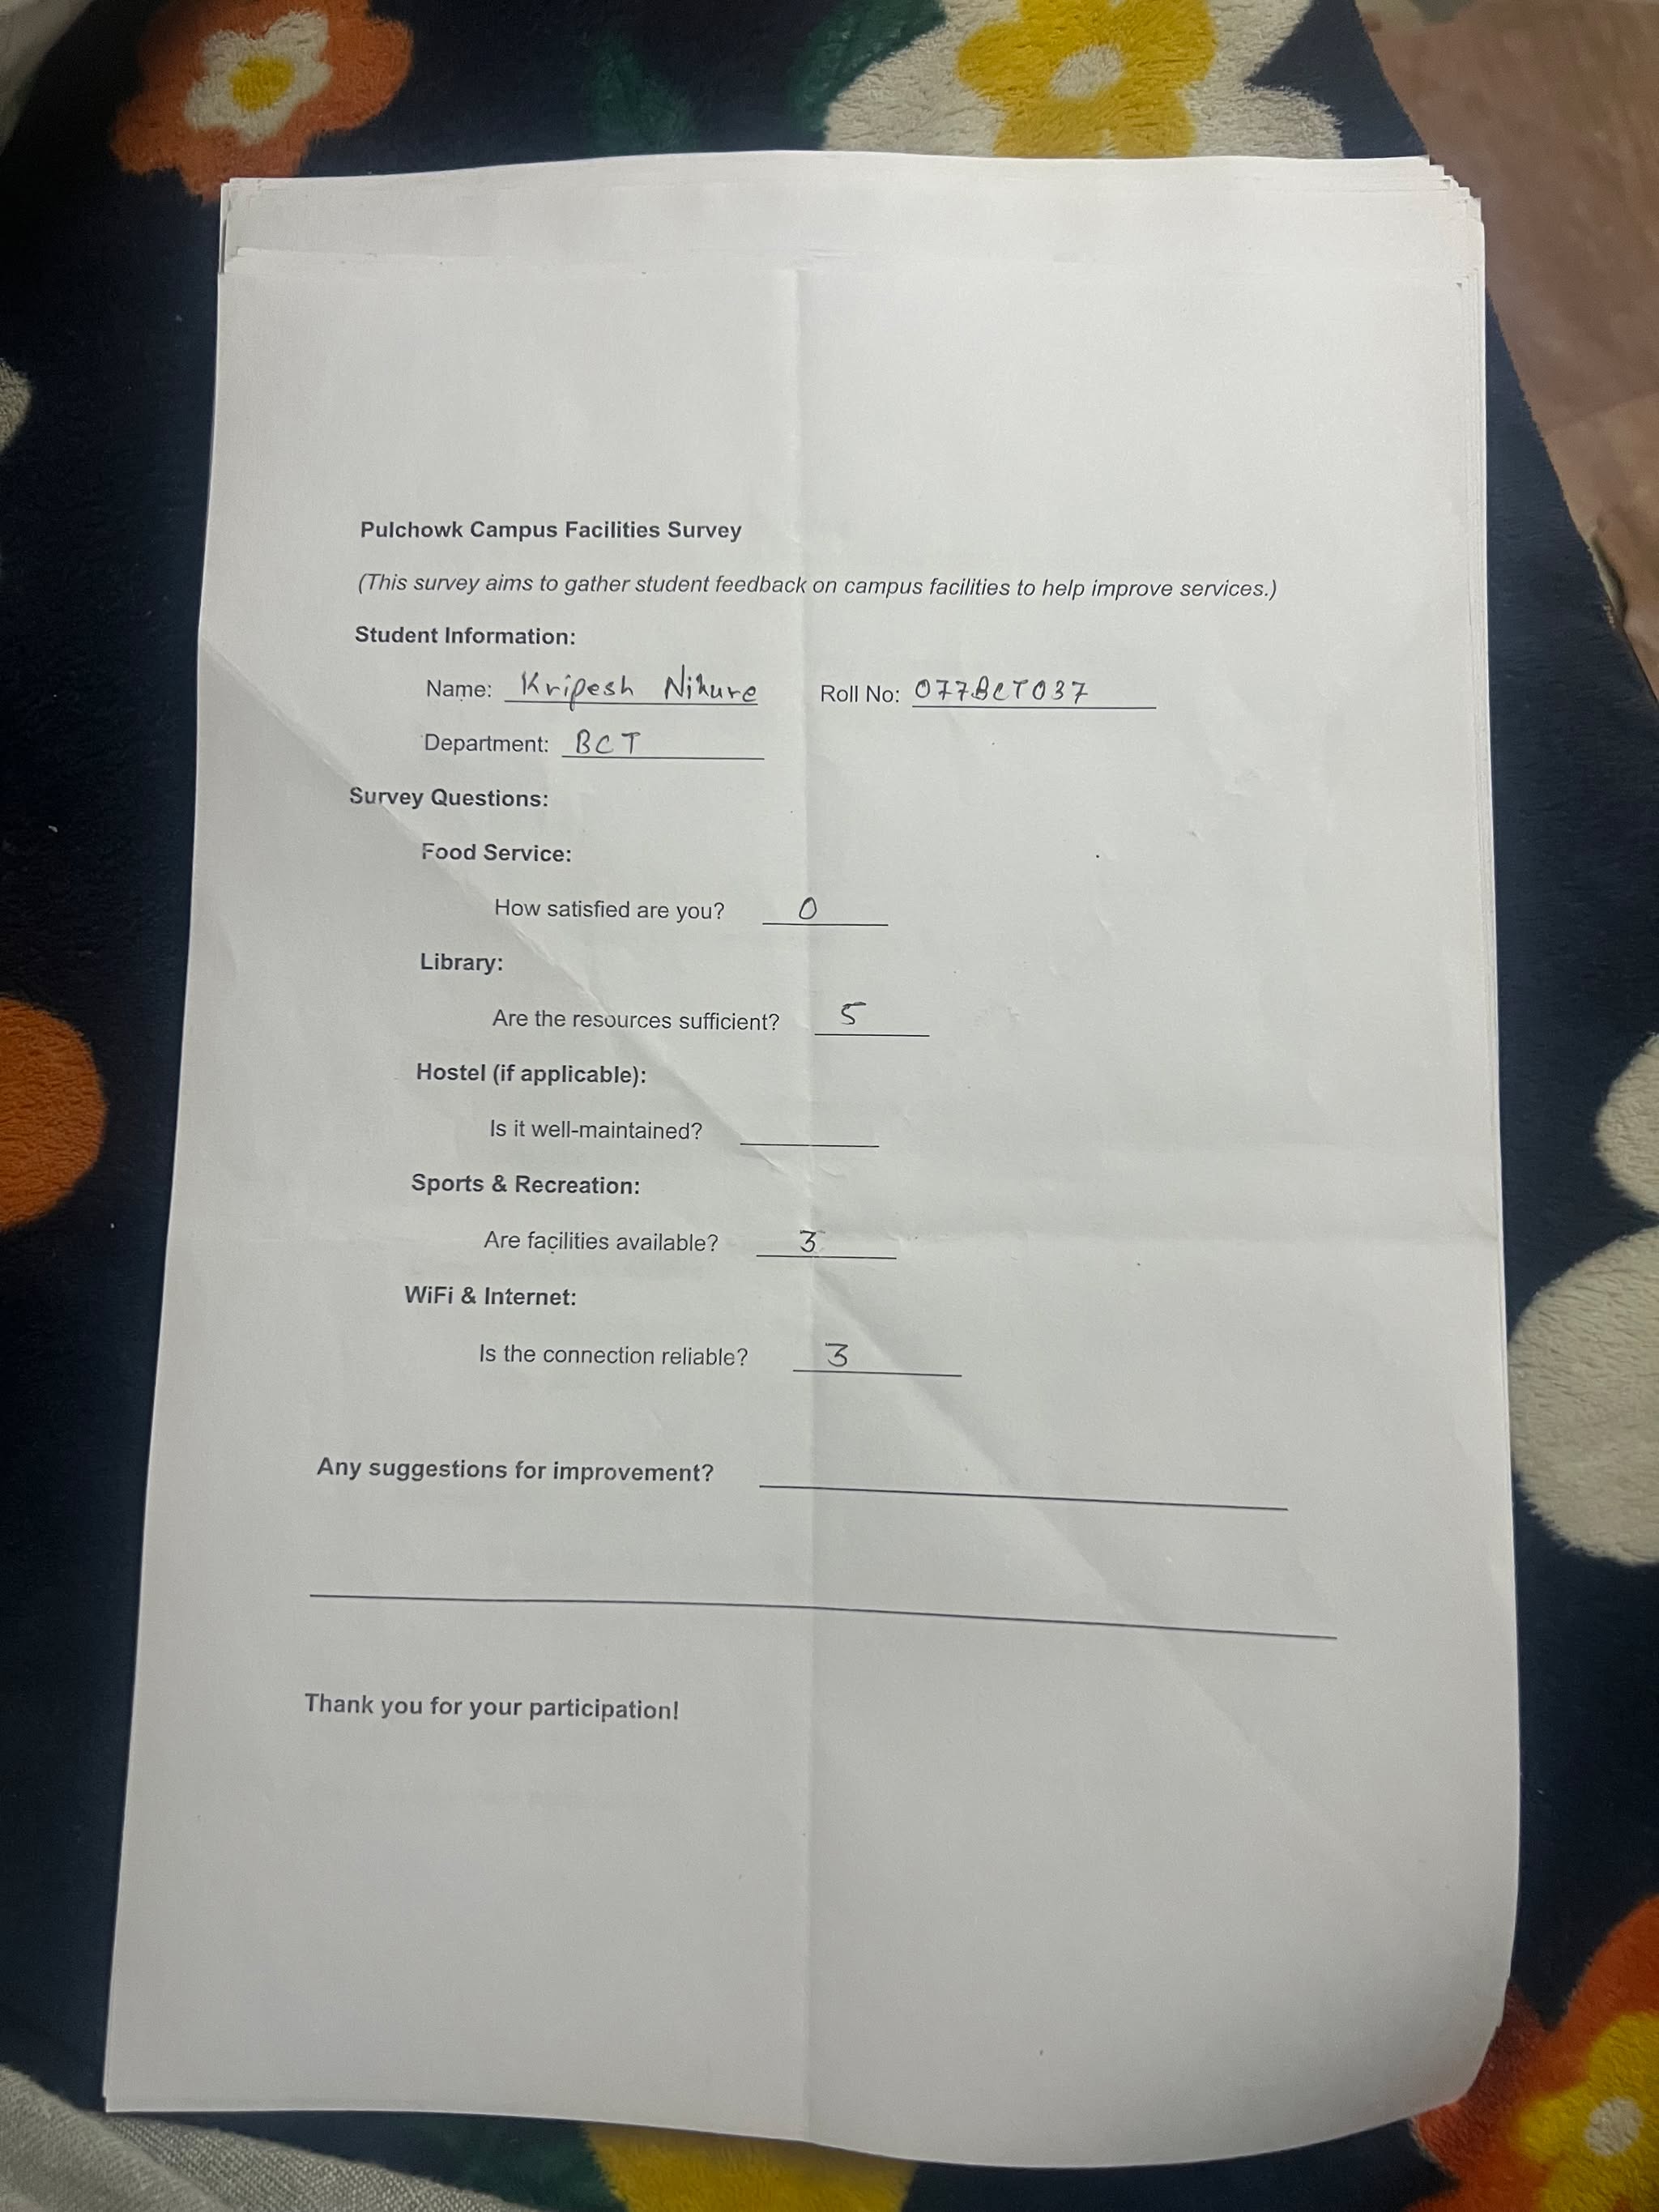 Pulchowk Campus Facilities Survey
(This survey aims to gather student feedback on campus facilities to help improve services.)
Student Information:
Name: Kripesh Nihure Roll No: 077BCT037
Department: BCT
Survey Questions:
Food Service:
How satisfied are you? 0
Library:
Are the resources sufficient? 5
Hostel (if applicable):
Is it well-maintained?
Sports & Recreation:
Are facilities available? 3
WiFi & Internet:
Is the connection reliable? 3
Any suggestions for improvement?
Thank you for your participation!